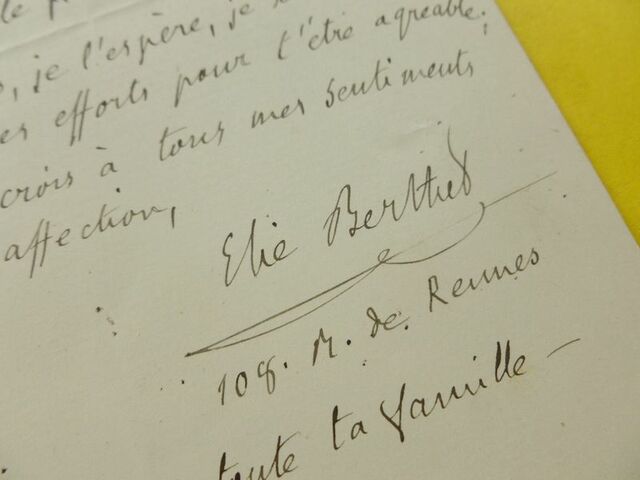 je l'espère, je
efforts pour t'être agréable;
crois à tous mes sentiments
affection,
Elie Berthet
108. R. de Rennes
toute ta famille –